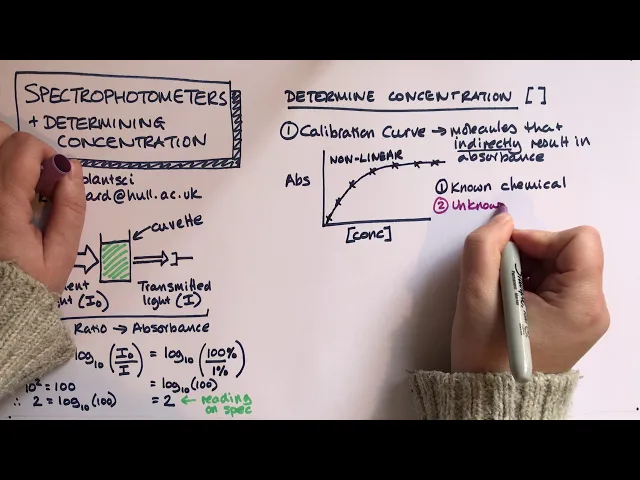 SPECTROPHOTOMETERS
+ DETERMINING
CONCENTRATION
plantsci
ard@hull.ac.uk
cuvette
Transmitted
light (I)
(I₀)
Ratio → Absorbance
log₁₀ (I₀/I) = log₁₀ (100%/1%)
10² = 100
= log₁₀ (100)
∴ 2 = log₁₀ (100)
= 2 ← reading
on spec
DETERMINE CONCENTRATION [ ]
① Calibration Curve → molecules that
indirectly result in
absorbance
NON-LINEAR
Abs
[conc]
① Known chemical
② Unknow